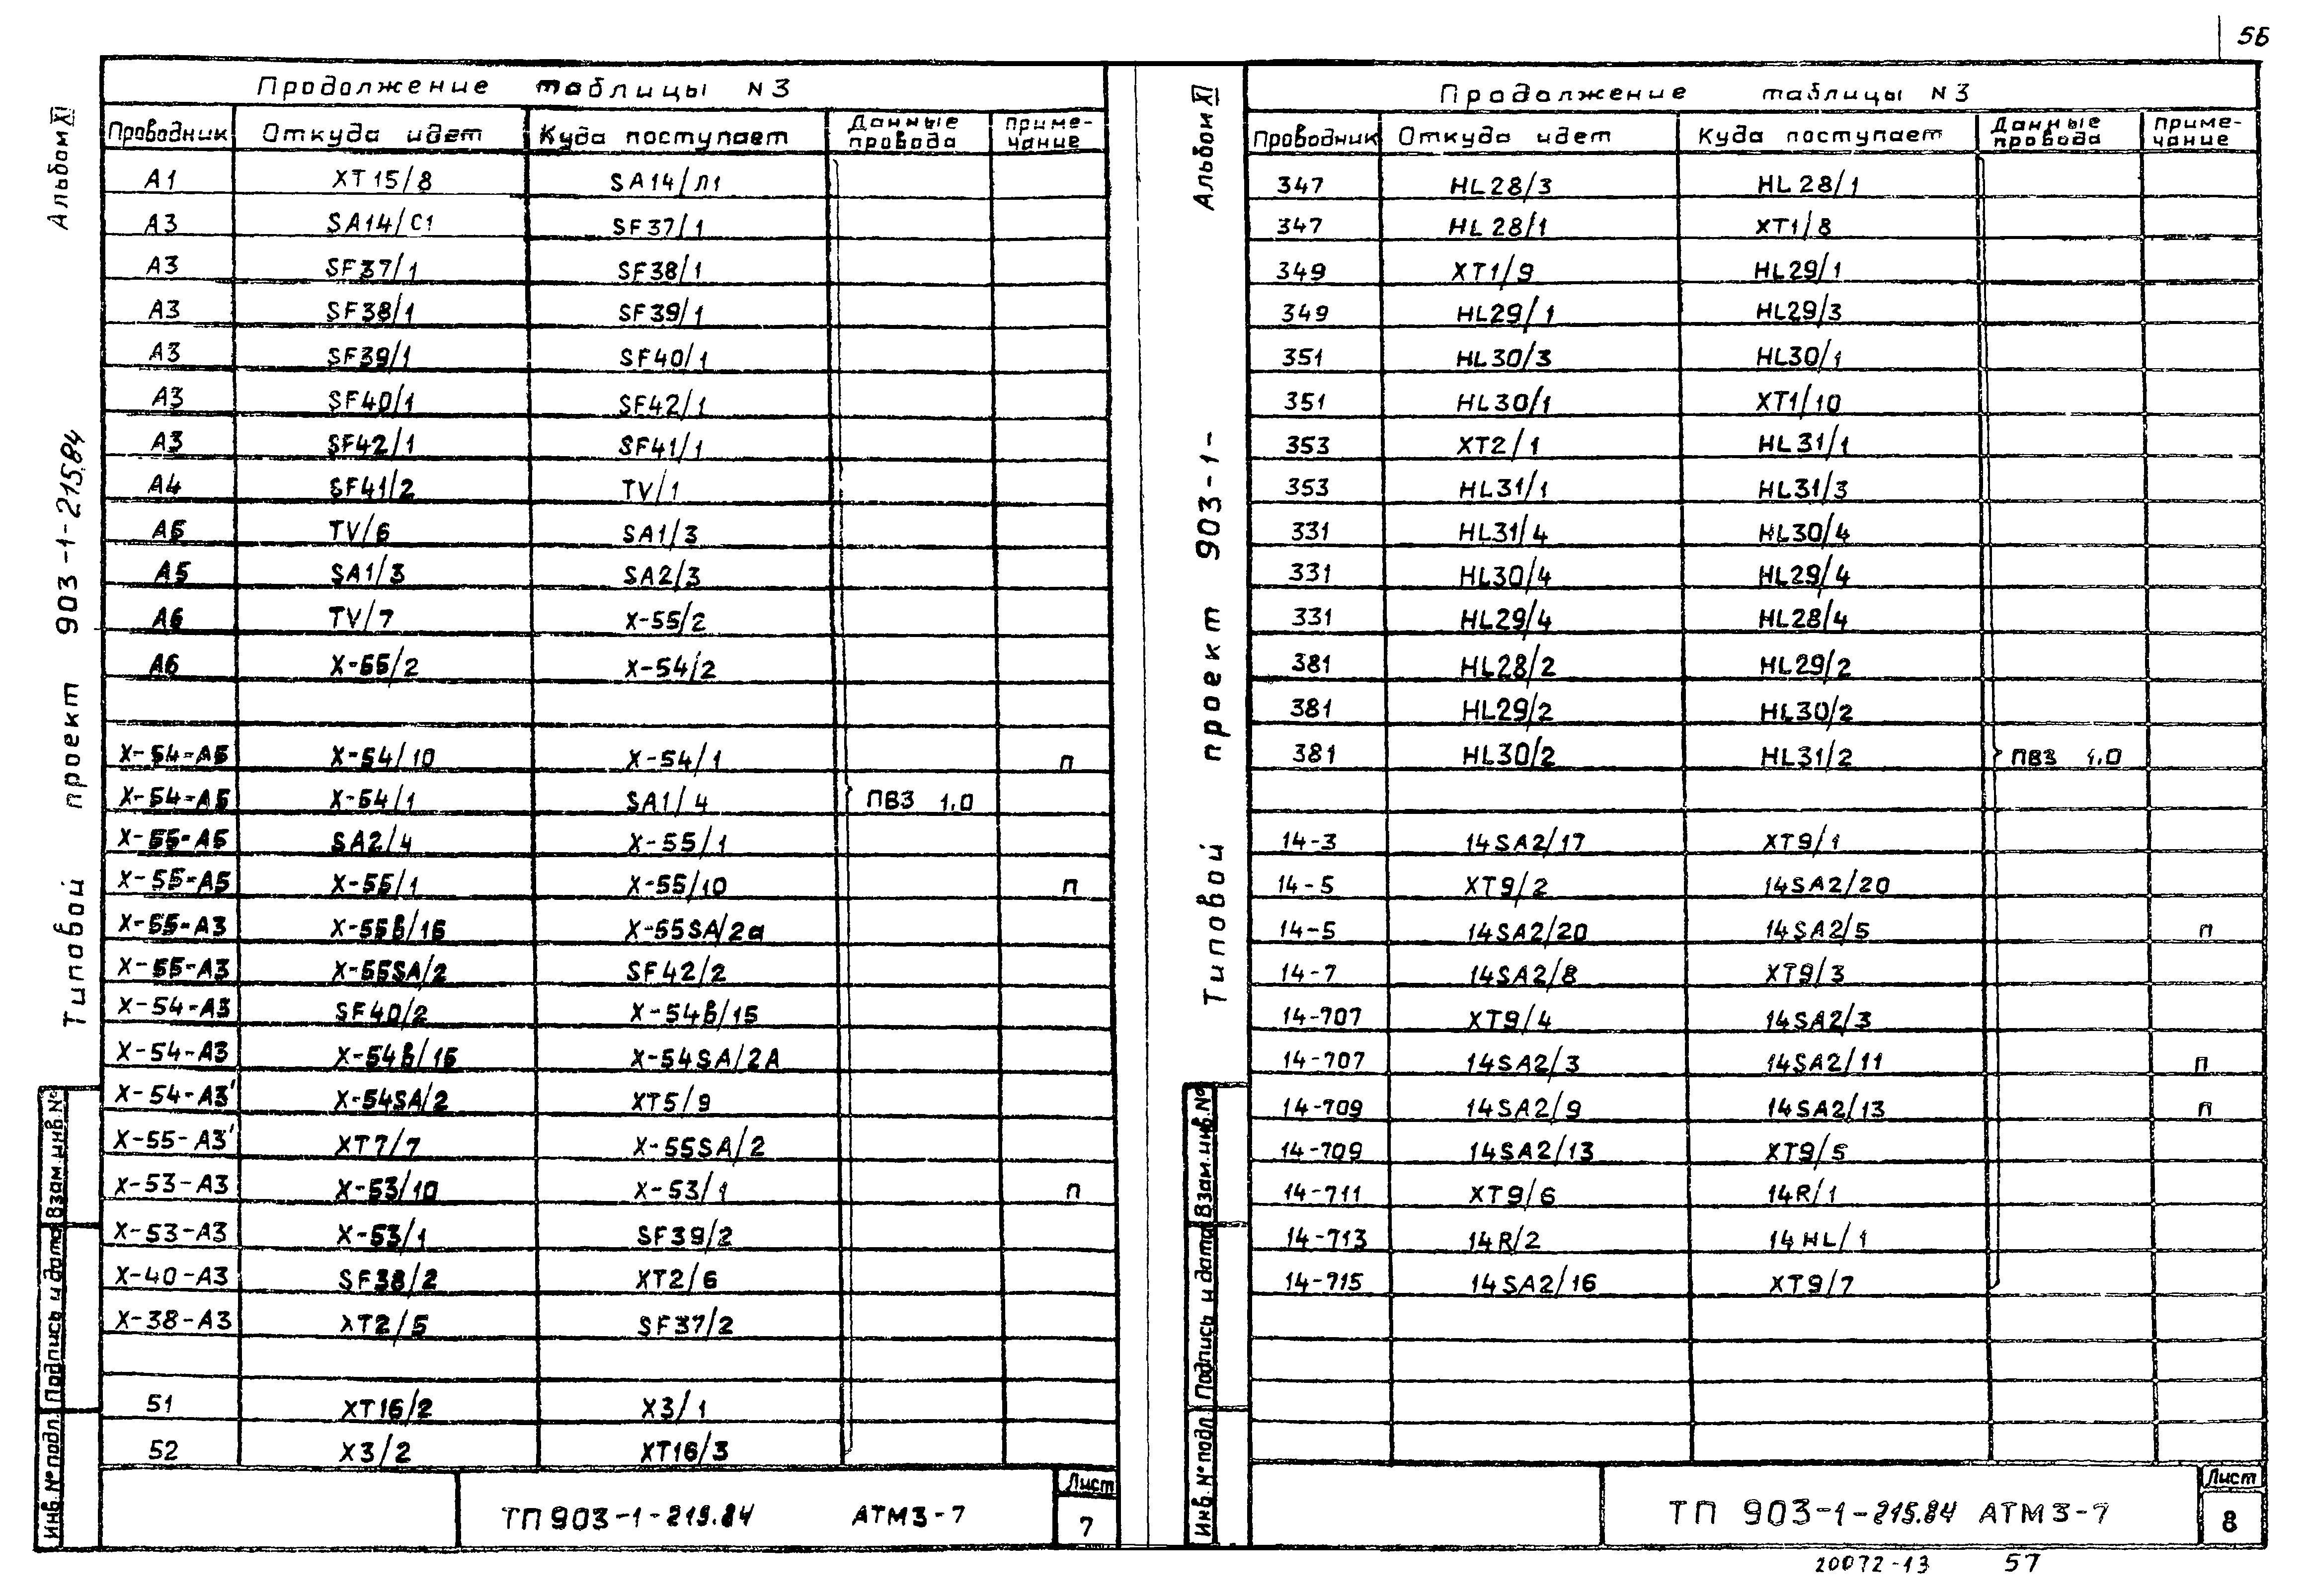 56
Альбом XI
Типовой проект 903-1-215.84
Продолжение таблицы N3
Проводник Откуда идет Куда поступает Данные провода Приме-чание
А1 XT15/8 SA14/Л1
А3 SA14/С1 SF37/1
А3 SF37/1 SF38/1
А3 SF38/1 SF39/1
А3 SF39/1 SF40/1
А3 SF40/1 SF42/1
А3 SF42/1 SF41/1
А4 SF41/2 TV/1
А5 TV/6 SA1/3
А5 SA1/3 SA2/3
А6 TV/7 X-55/2
А6 X-55/2 X-54/2
X-54-А5 X-54/10 X-54/1 п
X-54-А5 X-54/1 SA1/4 ПВ3 1,0
X-55-А5 SA2/4 X-55/1
X-55-А5 X-55/1 X-55/10 п
X-55-А3 X-55в/15 X-55SA/2а
X-55-А3 X-55SA/2 SF42/2
X-54-А3 SF40/2 X-54в/15
X-54-А3 X-54в/15 X-54SA/2А
X-54-А3' X-54SA/2 XT5/9
X-55-А3' XT7/7 X-55SA/2
X-53-А3 X-53/10 X-53/1 п
X-53-А3 X-53/1 SF39/2
X-40-А3 SF38/2 XT2/6
X-38-А3 XT2/5 SF37/2
51 XT16/2 X3/1
52 X3/2 XT16/3
Инв.№подл. Подпись и дата Взам.инв.№
ТП 903-1-215.84 АТМ3-7
Лист
7
Альбом XI
Типовой проект 903-1-
Продолжение таблицы N3
Проводник Откуда идет Куда поступает Данные провода Приме-чание
347 HL28/3 HL28/1
347 HL28/1 XT1/8
349 XT1/9 HL29/1
349 HL29/1 HL29/3
351 HL30/3 HL30/1
351 HL30/1 XT1/10
353 XT2/1 HL31/1
353 HL31/1 HL31/3
331 HL31/4 HL30/4
331 HL30/4 HL29/4
331 HL29/4 HL28/4
381 HL28/2 HL29/2
381 HL29/2 HL30/2
381 HL30/2 HL31/2 ПВ3 1,0
14-3 14SA2/17 XT9/1
14-5 XT9/2 14SA2/20
14-5 14SA2/20 14SA2/5 п
14-7 14SA2/8 XT9/3
14-707 XT9/4 14SA2/3
14-707 14SA2/3 14SA2/11 п
14-709 14SA2/9 14SA2/13 п
14-709 14SA2/13 XT9/5
14-711 XT9/6 14R/1
14-713 14R/2 14HL/1
14-715 14SA2/16 XT9/7
Инв.№подл. Подпись и дата Взам.инв.№
ТП 903-1-215.84 АТМ3-7
Лист
8
20072-13 57